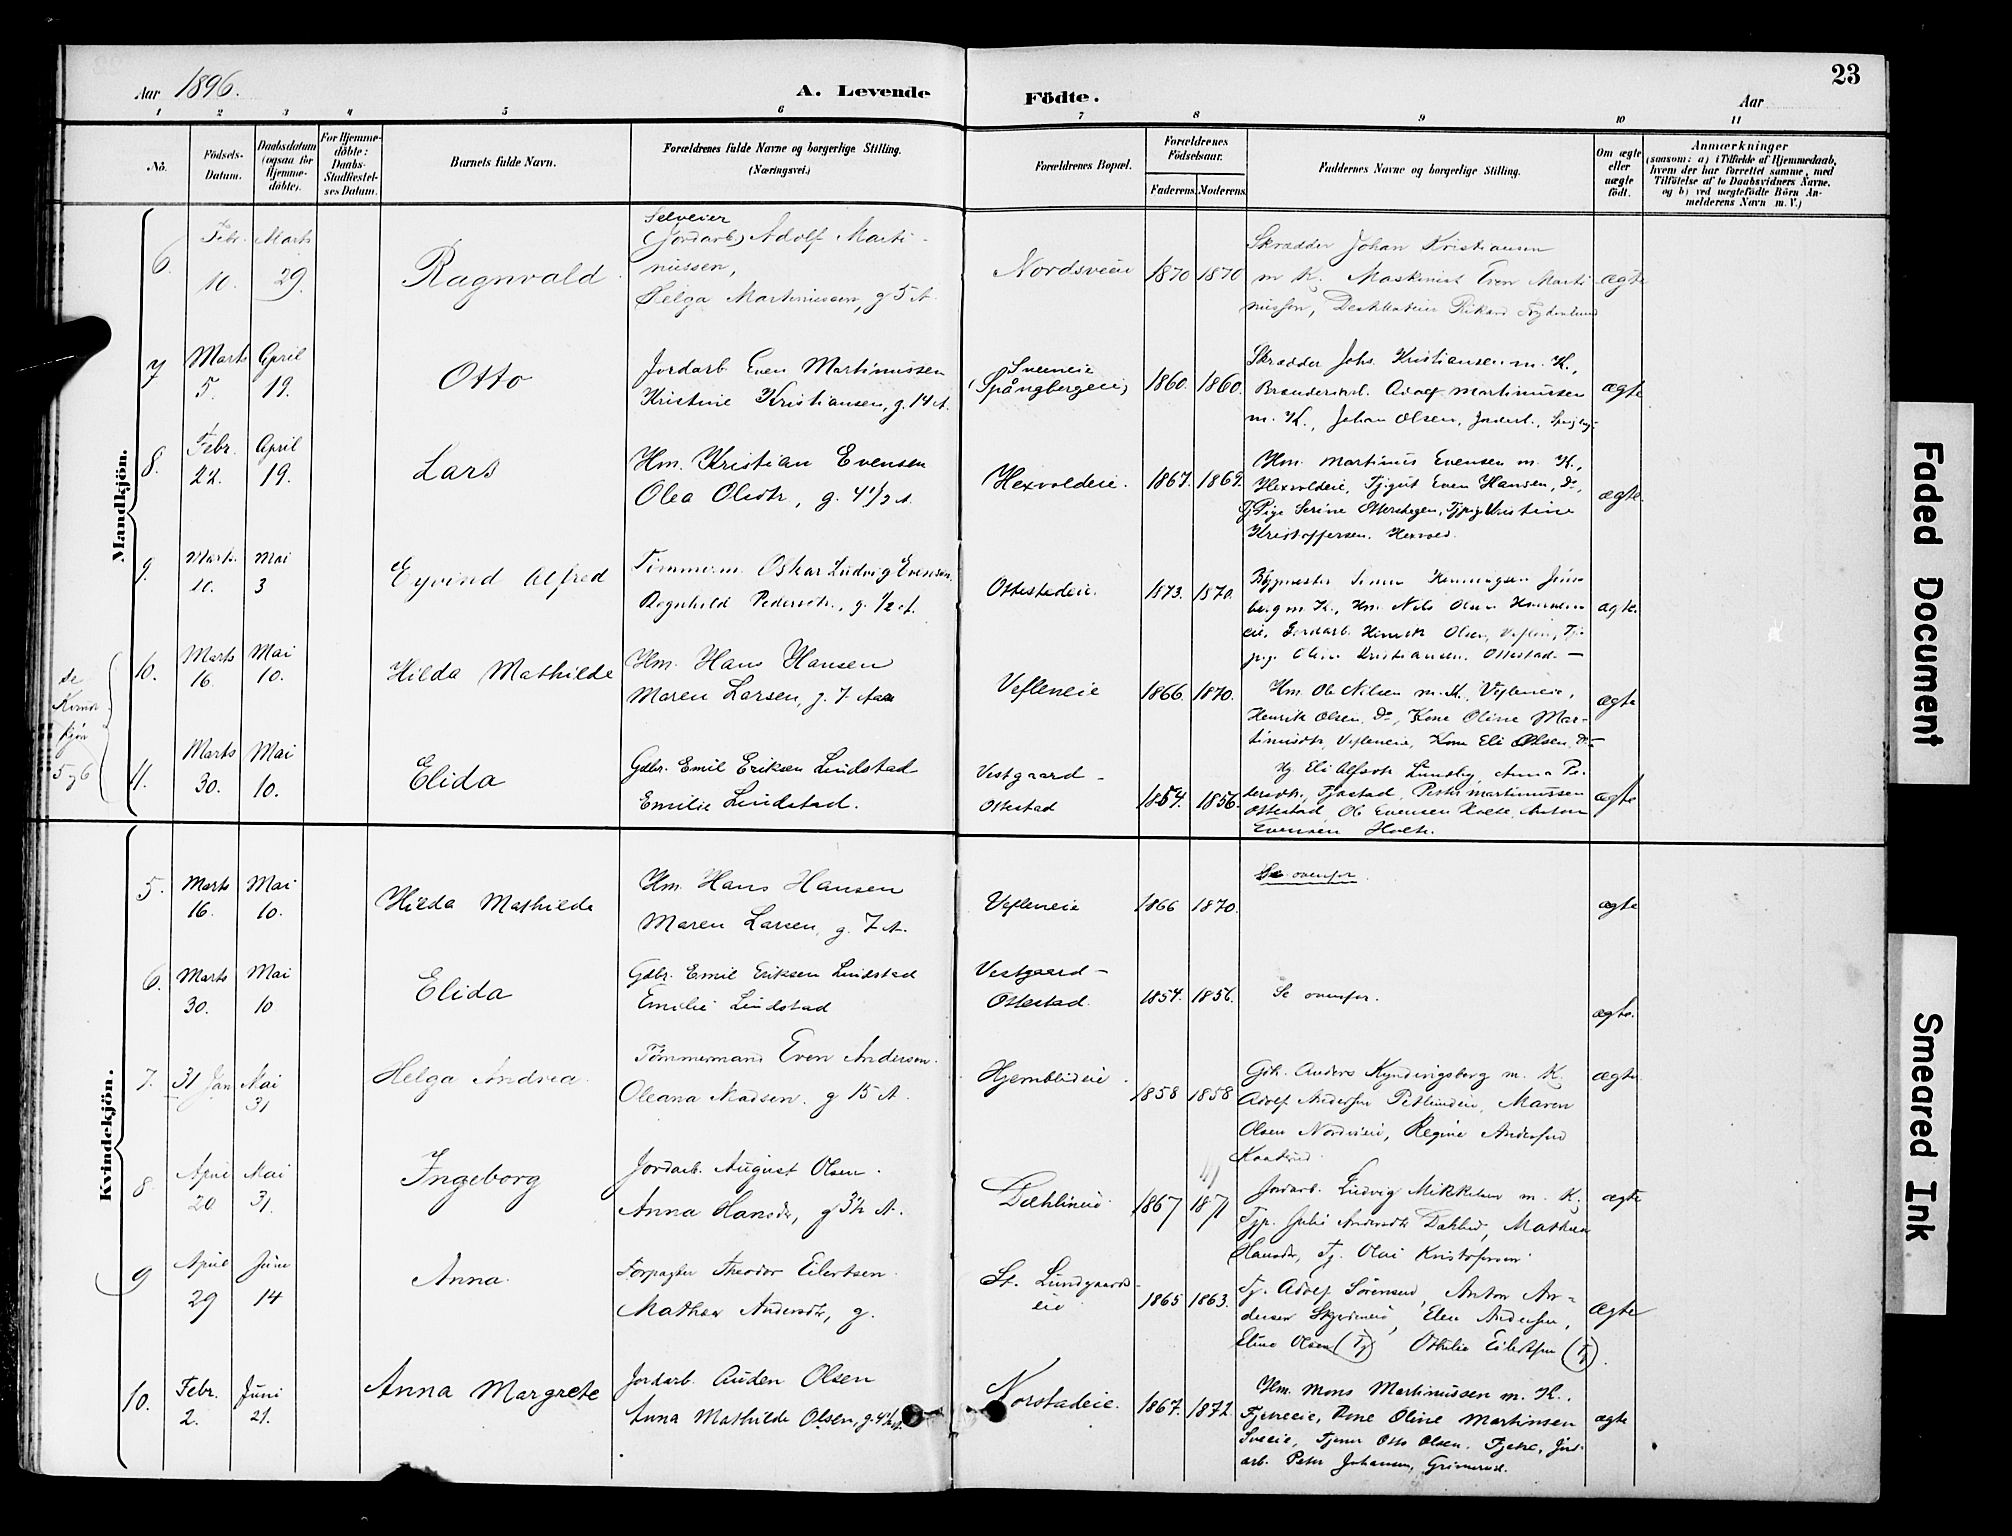 23
Aar 1896.
A. Levende Födte.
Aar
1 2 3 4 5 6 7 8 9 10 11
No.
Födsels-Datum.
Daabsdatum (ogsaa for Hjemme-döbte).
For Hjemme-döbte: Daabs-Stadfæstel-ses Datum.
Barnets fulde Navn.
Forældrenes fulde Navne og borgerlige Stilling. (Næringsvei.)
Forældrenes Bopæl.
Forældrenes Födselsaar.
Faderens. Moderens.
Faddernes Navne og borgerlige Stilling.
Om ægte eller uægte födt.
Anmærkninger
(saasom: a) i Tilfælde af Hjemmedaab,
hvem der har forrettet samme, med
Tilföielse af to Daabsvidners Navne,
og b) ved uægtefödte Börn An-
melderens Navn m. V.)
Mandkjön.
6. Febr. 10. Marts 29. Ragnvald.
Selveier
(Jordarb) Adolf Marti-
nussen,
Helga Martinussen, g 5 A.
Nordsveie 1870 1870
Skrædder Johan Kristiansen
m K. Maskinist Even Marti
nussen,
ægte
7 Marts 5. April 19. Otto
Jordarb Even Martinussen
Kristine Kristiansen, g. 14 A.
Sveneie
(Spångbergeie)
1860. 1860.
Skrædder Johs. Kristiansen m. K.,
Adolf Martinussen
m. K., Johan Olsen, Jordarb.,
ægte
8. Febr. 22. April 19. Lars
Hm. Kristian Evensen
Olea Olsdtr, g. 4 1/2 A.
Hexvoldeie. 1867. 1869.
Hm. Martinus Evensen m. K.,
Hexvoldeie, Tjgut Even Hansen, Do,
Tj.Pige Serine Ottershagen, Tjpig Kristine
Kristoffersen, Hexvold.
ægte.
9. Marts 10. Mai 3 Eyvind Alfred
Tømmerm. Oskar Ludvig Evensen.
Ragnhild Pedersdtr., g. 1/2 A.
Ottestadeie. 1873. 1870.
m. K., Hm. Nils Olsen
eie, Jordarb. Henrik Olsen, Veflen, Tj.
pige Oline Kristiansen. Ottestad. —
ægte.
de
Kvind
kjön
5 og 6
10. Marts 16. Mai 10. Hilda Mathilde
Hm. Hans Hansen
Maren Larsen, g. 7 Aar
Vefleneie 1866. 1870.
Hm. Ole Nilsen m. K. Vefleneie,
Henrik Olsen, Do, Kone Oline Mar-
tinusdtr, Vefleneie, Kone Eli Olsen, Do —
ægte
11. Marts 30. Mai 10. Elida
Gdbr. Emil Eriksen Lindstad
Emilie Lindstad.
Vestgaard-
Ottestad
1854. 1856.
Eli Alfsdtr Lundby, Anna Pe-
dersdtr, Tjostad, Peter Martinussen
Ottestad, Ole Evensen Holte, Anton
Evensen Holte.
ægte
Kvindekjön.
5. Marts 16. Mai 10. Hilda Mathilde
Hm. Hans Hansen
Maren Larsen, g. 7 A.
Vefleneie 1866 1870.
Se ovenfor.
ægte
6. Marts 30. Mai 10 Elida
Gdbr. Emil Eriksen Lindstad
Emilie Lindstad
Vestgaard-
Ottestad.
1854. 1856.
Se ovenfor.
ægte.
7. 31 Jan Mai 31 Helga Andrea.
Tømmermand Even Andersen.
Oleana Madsen. g 15 A.
Hjemblideie. 1858 1858
Gdb. Anders Kyndirigsberg m. K.
Adolf Andersen Maren
Olsen Nordsveie, Regine Andersen
ægte
8. April 20 Mai 31. Ingeborg
Jordarb. August Olsen.
Anna Hansdtr, g 3 1/2 A.
Dæhlineie 1867 1871
Jordarb. Ludvig Mikkelsen m. K.
Tjp. Julie Andersdtr Mathea
Hansdtr, Tj. Olai Kristofersen
ægte
9 April 29 Juni 14 Anna.
Forpagter Theodor Eilertsen.
Mathea Andersdtr, g.
St. Lundgaards-
eie
1865 1863.
Tj. Adolf Sörensen, Anton An-
dersen Elen Andersen,
Eline Olsen (Tj) Othilie Eilertsen (Tj).
ægte
10. Febr. 2. Juni 21. Anna Margrete
Jordarb. Auden Olsen
Anna Mathilde Olsen, g. 4 1/2 A.
Norstadeie. 1867. 1872.
Hm. Mons Martinussen m. K.,
Kone Oline Martinsen
Sveeie, Tjener Otto Olsen, Jord-
arb. Peter Johansen, Grimerud.
ægte
Faded Document
Smeared Ink